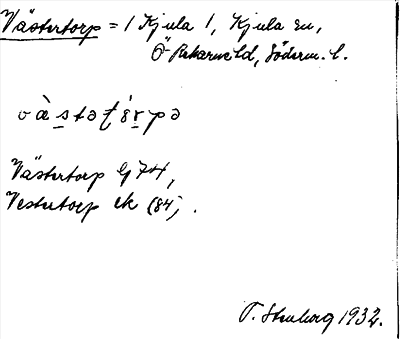 Västertorp = 1 Kjula 1, Kjula sn,
Ö Rekarne hd, Söderm. l.
Västertorp Gj 74,
Vestertorp ek (84) .
T. Stenborg 1932.